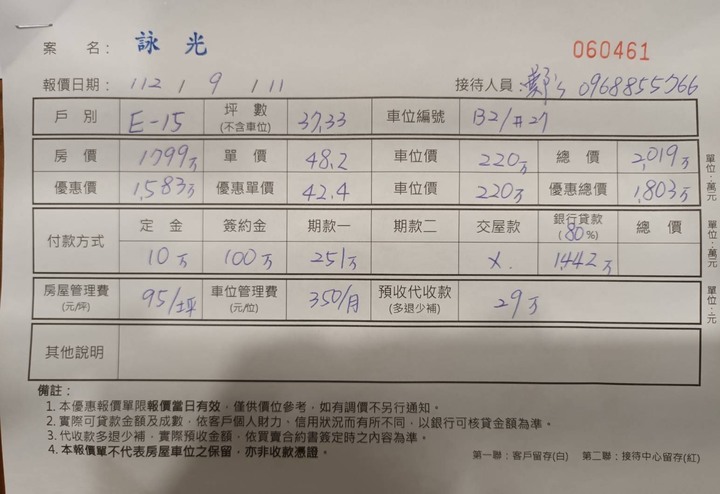 案 名： 詠 光
060461
報價日期： 112 / 9 / 11 接待人員： 鄭's 0968855766
戶 別 E-15 坪 數 (不含車位) 37.33 車位編號 B2/#27
房 價 1799万 單 價 48.2 車位價 220万 總 價 2,019万
優惠價 1,583万 優惠單價 42.4 車位價 220万 優惠總價 1,803万
單位：萬元
付款方式 定 金 簽約金 期款一 期款二 交屋款 銀行貸款 (80%) 總 價
10万 100万 251万 X. 1,442万
單位：萬元
房屋管理費 (元/坪) 95/坪 車位管理費 (元/位) 350/月 預收代收款 (多退少補) 29万
單位：元
其他說明
備註：
1. 本優惠報價單限報價當日有效，僅供價位參考，如有調價不另行通知。
2. 實際可貸款金額及成數，依客戶個人財力、信用狀況而有所不同，以銀行可核貸金額為準。
3. 代收款多退少補，實際預收金額，依買賣合約書簽定時之內容為準。
4. 本報價單不代表房屋車位之保留，亦非收款憑證。
第一聯：客戶留存(白) 第二聯：接待中心留存(紅)